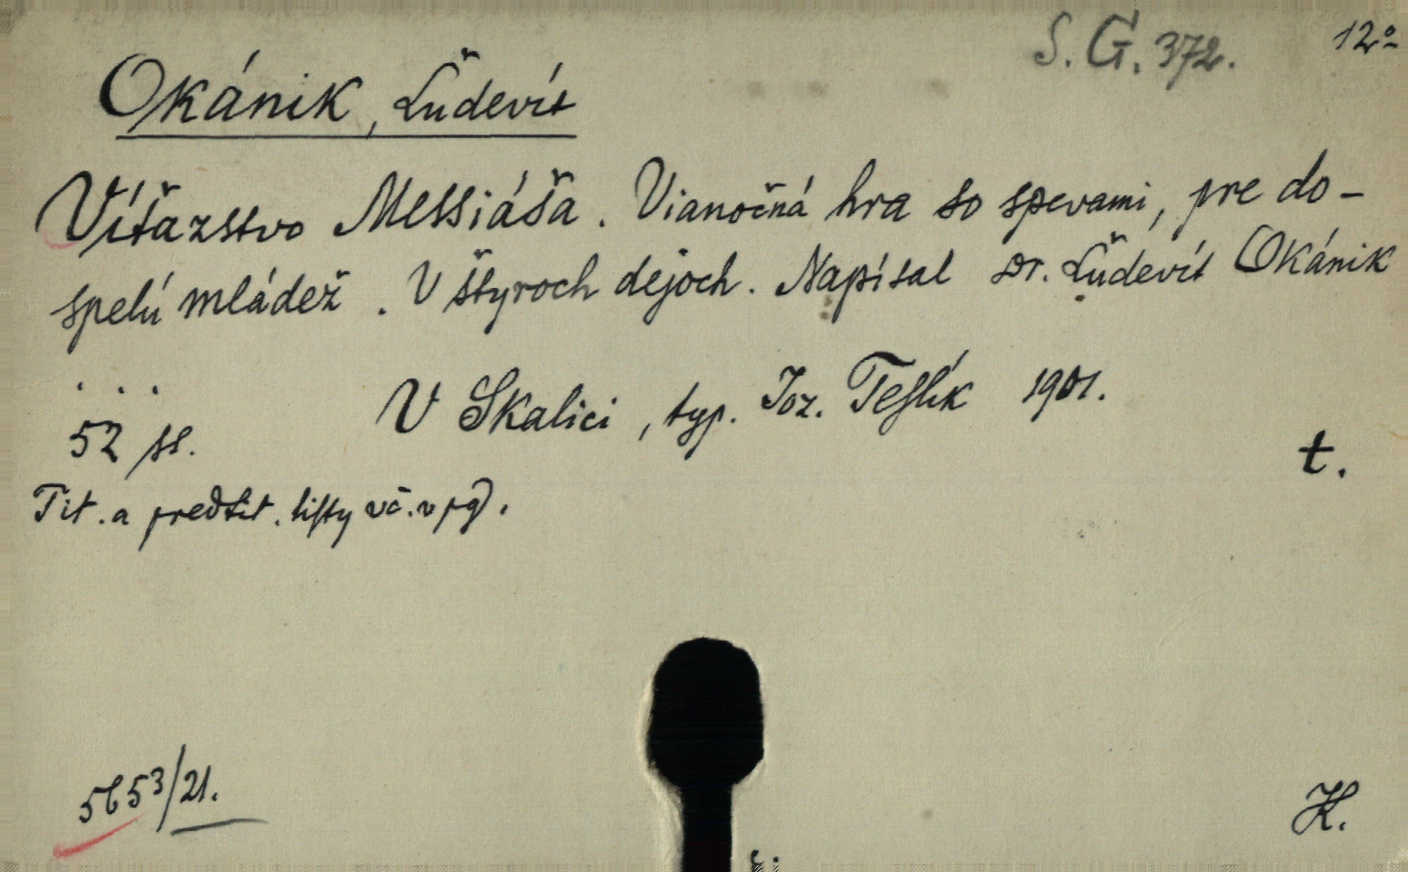 S. G. 372. 12º
Okánik, Ľudevít
Víťazstvo Messiáša. Vianočná hra so spevami, pre do-
spelú mládež. V štyroch dejoch. Napísal Dr. Ľudevít Okánik
. . . V Skalici, typ. Joz. Teslík 1901.
52 ss.
t.
Tit. a predtit. listy vč. v pg).
5653/21.
H.